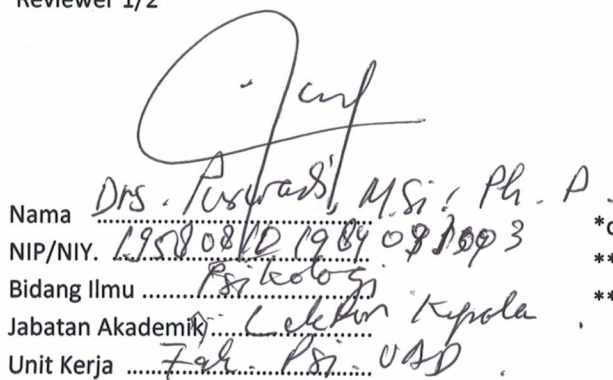 Reviewer 1/2
Nama Drs. Purwadi, M.Si., Ph.D. *
NIP/NIY. **
Bidang Ilmu Psikologi **
Jabatan Akademik Lektor Kepala
Unit Kerja Fak. Psi. UAD